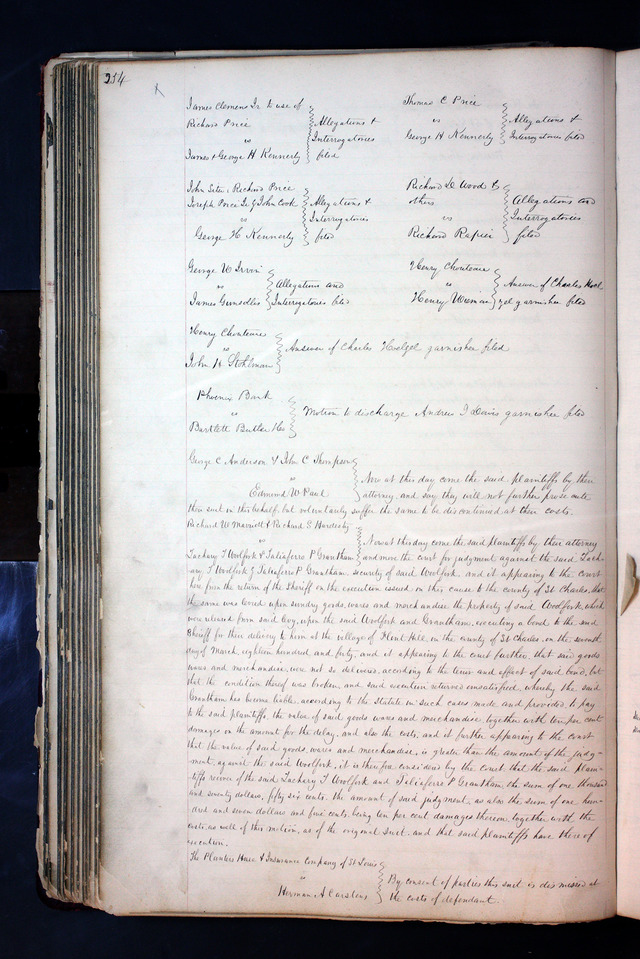 254
James Clemens Jr. to use of
Richard Price
vs
James & George H Kennerly
Allegations &
Interrogatories
filed
Thomas C Price
vs
George H Kennerly
Allegations &
Interrogatories filed
John Richard Price
Joseph Price Jr. & John Cook
vs
George H Kennerly
Allegations &
Interrogatories
filed
Richard D Wood &
others
vs
Richard Rapier
Allegations and
Interrogatories
filed
George W Irvin
vs
James
Allegations and
Interrogatories filed
Henry Chouteau
vs
Henry
Answer of Charles Hoel
zel garnishee filed
Henry Chouteau
vs
John H. Stohlman
Answer of Charles Hoelzel garnishee filed
Phoenix Bank
vs
Bartlett Butler
Motion to discharge Andrew J Davis garnishee filed
George C Anderson & John C Thompson
vs
Edmond W Paul
Now at this day come the said plaintiffs by their
attorney, and say they will not further prosecute
their suit in this behalf, but voluntarily suffer the same to be discontinued at their costs.
Richard W Marriott & Richard S Hardesty
vs
Zachary T Woolfork & Taliaferro P Grantham
Now at this day come the said plaintiffs by their attorney
and move the court for judgment against the said Zach
ary T Woolfork & Taliaferro P. Grantham, security of said Woolfork, and it appearing to the court
here from the return of the Sheriff on the execution issued, on this cause to the county of St Charles, that
the same was levied upon sundry goods, wares and merchandise the property of said Woolfork, which
were released from said levy, upon the said Woolfork and Grantham, executing a bond to the said
Sheriff for their delivery to him at the village of Flint Hill, in the county of St Charles, on the seventh
day of March, eighteen hundred and forty, and it appearing to the court further, that said goods
wares and merchandise, were not so delivered, according to the tenor and effect of said bond, but
that the condition thereof was broken, and said execution returned unsatisfied, whereby the said
Grantham has become liable, according to the statute in such cases made and provided, to pay
to the said plaintiffs, the value of said goods wares and merchandise, together with ten per cent
damages on the amount for the delay, and also the costs, and it further appearing to the court
that the value of said goods, wares and merchandise, is greater than the amount of the judg-
ment, against the said Woolfork, it is therefore considered by the court that the said Plain-
tiffs recover of the said Zachary T Woolfork and Taliaferro P. Grantham, the sum of one thousand
and seventy dollars, fifty six cents, the amount of said judgment, as also the sum of one hun-
dred and seven dollars and five cents, being ten per cent damages thereon, together with the
costs as well of this motion, as of the original suit, and that said plaintiffs have thereof
execution.
The Planters House & Insurance Company of St Louis
vs
Herman A Carstens
By consent of parties this suit is dismissed at
the costs of defendant.